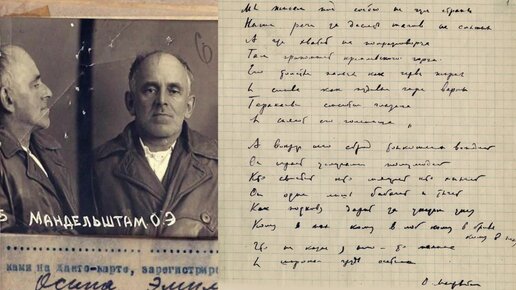 6
3 МАНДЕЛЬШТАМ О.Э
ками на данто-карте, зарегистриро
Осипа Эмил
Мы живем под собою не чуя страны
Наши речи за десять шагов не слышны
А где хватит на полразговорца
Там припомнят кремлевского горца
Его толстые пальцы как черви жирны
И слова как пудовые гири верны
Тараканьи смеются глазища
И сияют его голенища
А вокруг его сброд тонкошеих вождей
Он играет услугами полулюдей
Кто свистит кто мяучит кто хнычет
Он один лишь бабачит и тычет
Как подкову дарит за указом указ
Кому в пах кому в лоб кому в бровь
кому в глаз
Что ни казнь у него - то малина
И широкая грудь осетина
О. Мандельштам